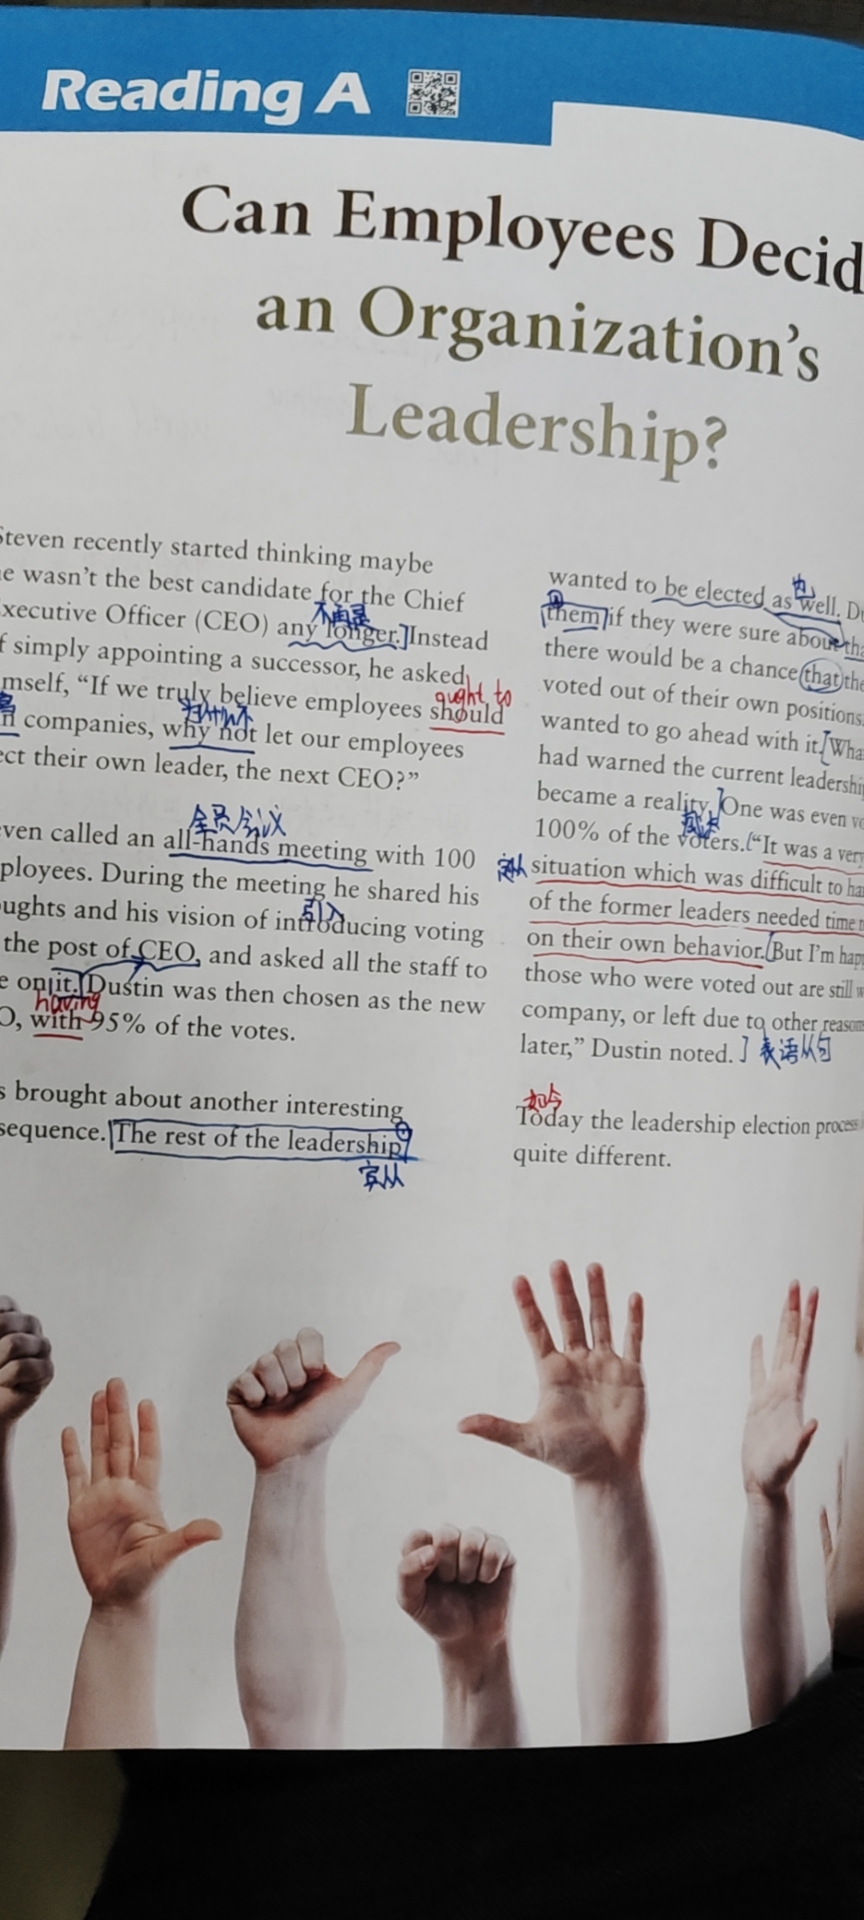 Reading A
Can Employees Decid
an Organization's
Leadership?
Steven recently started thinking maybe
e wasn't the best candidate for the Chief
xecutive Officer (CEO) any longer. Instead
不再是
f simply appointing a successor, he asked
mself, "If we truly believe employees should
ought to
n companies, why not let our employees
为什么不
ect their own leader, the next CEO?"
ven called an all-hands meeting with 100
全员会议
ployees. During the meeting he shared his
oughts and his vision of introducing voting
引入
the post of CEO, and asked all the staff to
e on it. Dustin was then chosen as the new
having
O, with 95% of the votes.
s brought about another interesting
sequence. The rest of the leadership
宾从
wanted to be elected as well. Du
也
them if they were sure about tha
there would be a chance that the
voted out of their own positions.
wanted to go ahead with it. Wha
had warned the current leadershi
became a reality. One was even vo
100% of the voters. "It was a very
定从
situation which was difficult to ha
of the former leaders needed time
on their own behavior. But I'm hap
those who were voted out are still w
company, or left due to other reason
later," Dustin noted.
表语从句
如今
Today the leadership election process
quite different.